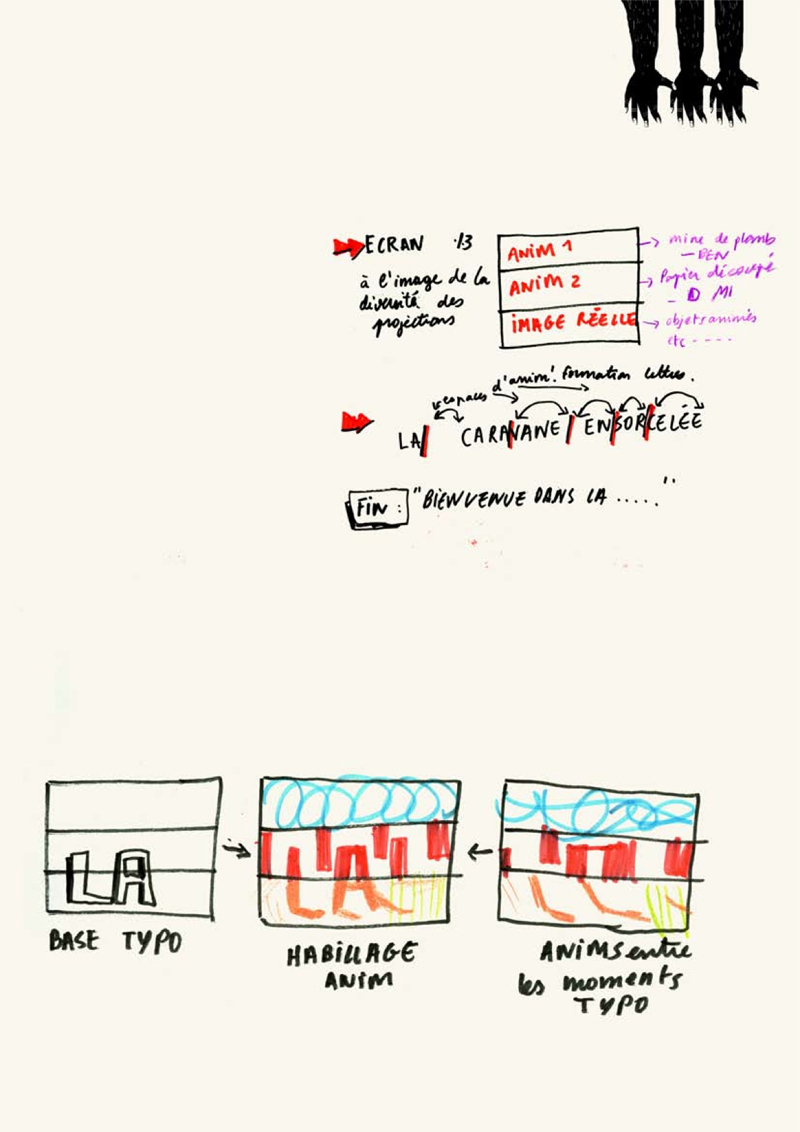 ECRAN ·/3
à l'image de la
diversité des
projections
ANIM 1
ANIM 2
IMAGE RÉELLE
mine de plomb
Papier découpé
objets animés
etc ----
espaces d'anim! formation lettres.
LA/ CARA/VANE / EN/SOR/CELÉE
FIN : "BIENVENUE DANS LA ....."
LA
BASE TYPO
LA
HABILLAGE
ANIM
ANIMS entre
les moments
TYPO